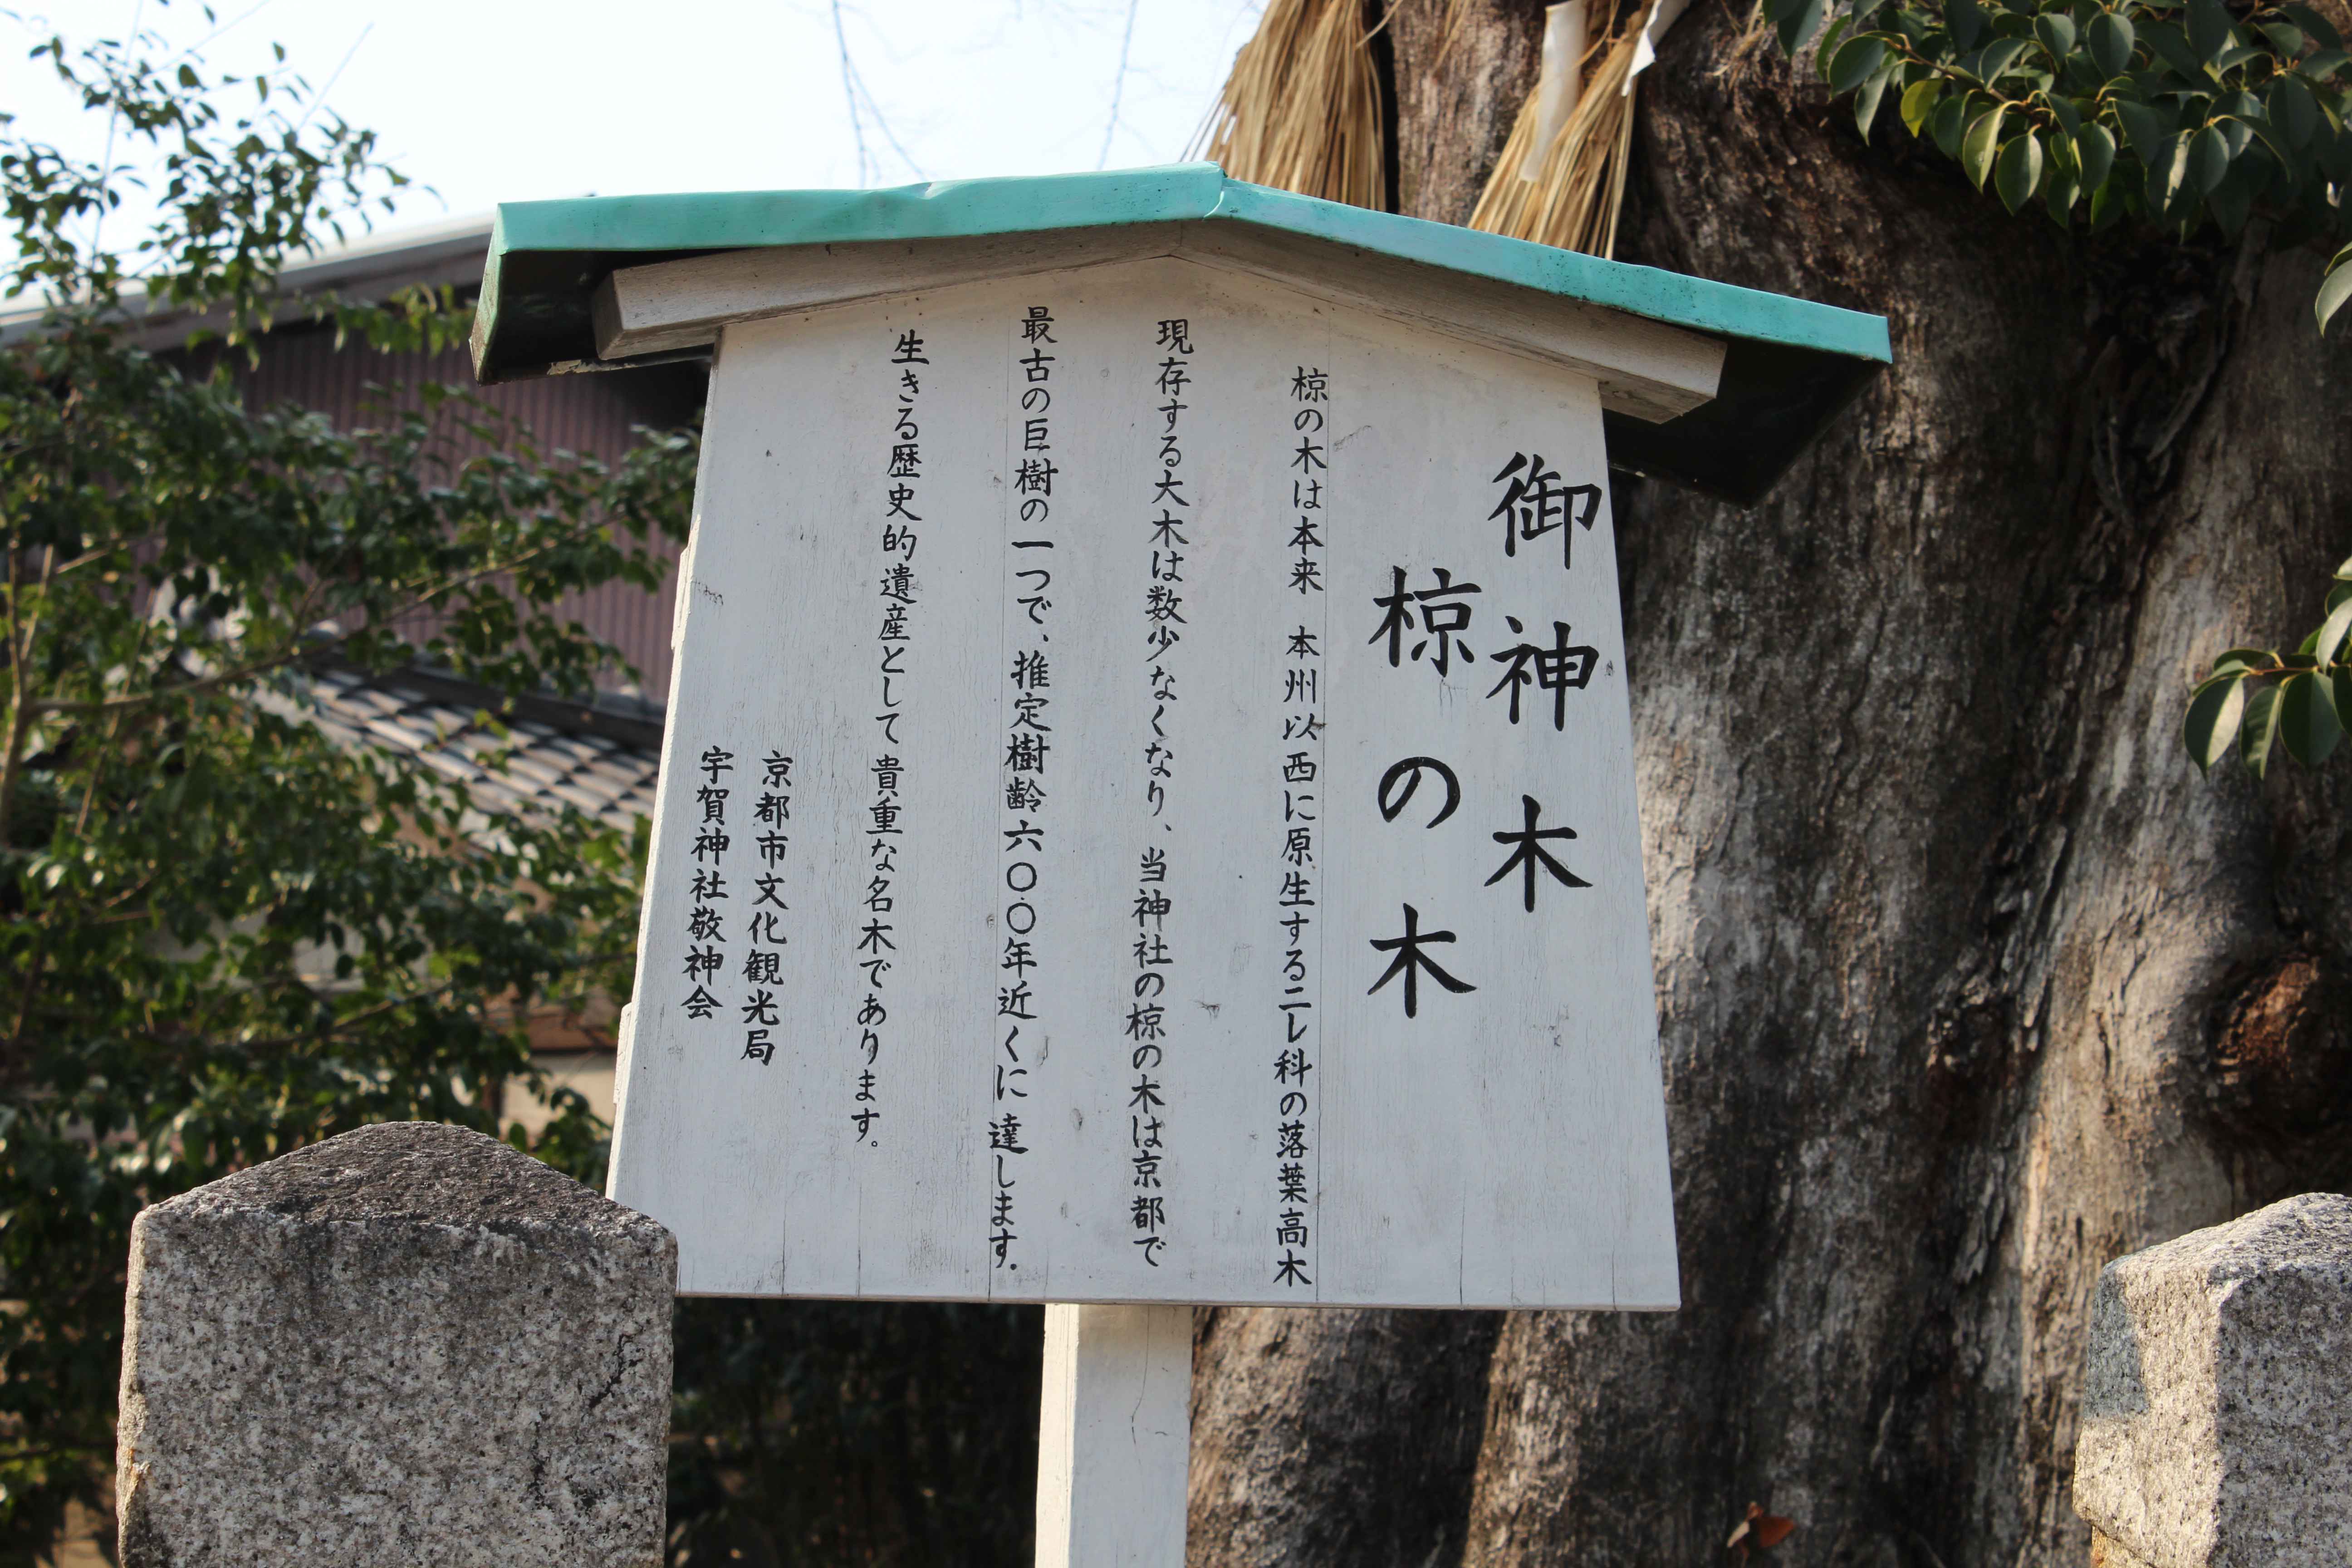 御神木
椋の木
椋の木は本来 本州以西に原生するニレ科の落葉高木
現存する大木は数少なくなり、当神社の椋の木は京都で
最古の巨樹の一つで、推定樹齢六〇〇年近くに達します.
生きる歴史的遺産として貴重な名木であります。
京都市文化観光局
宇賀神社敬神会